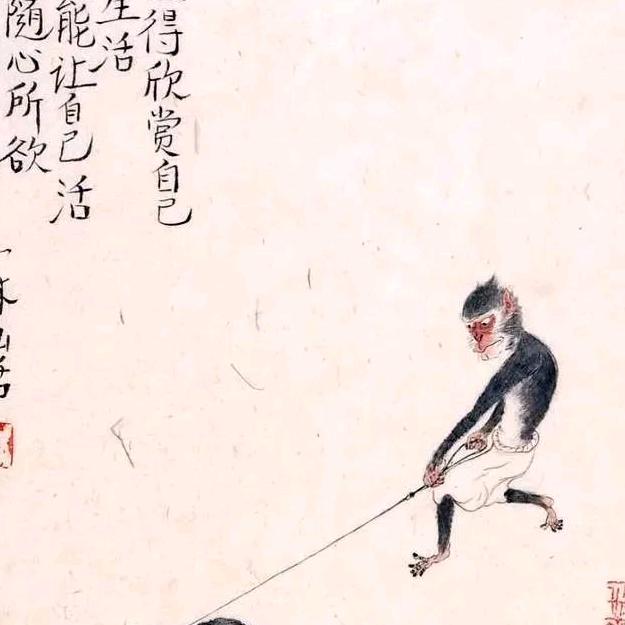 得欣赏自己
生活
能让自己活
随心所欲